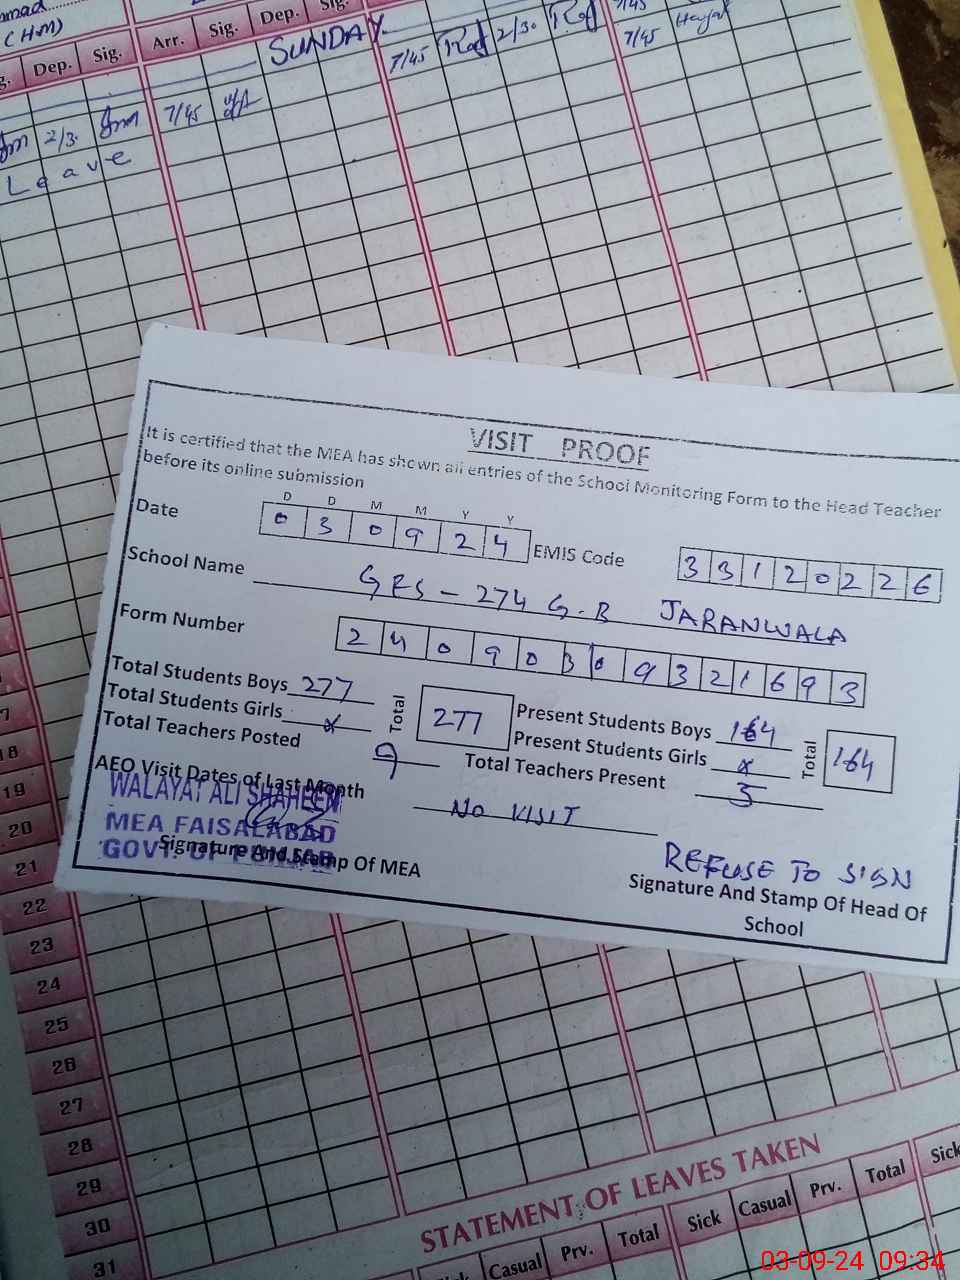 mmad
(HM)
Dep. Sig. Arr. Sig. Dep. Sig.
SUNDAY
7/45 2/30 7/45
7/45
2/3. 7/45
Leave
VISIT PROOF
It is certified that the MEA has shown all entries of the School Monitoring Form to the Head Teacher
before its online submission
D D M M Y Y
Date 0 3 0 9 2 4 EMIS Code 3 3 1 2 0 2 2 6
School Name GES - 274 G.B JARANWALA
Form Number 2 4 0 9 0 3 0 9 3 2 1 6 9 3
Total Students Boys 277 Total 277 Present Students Boys 164 Total 164
Total Students Girls x Present Students Girls x
Total Teachers Posted 9 Total Teachers Present 5
AEO Visit Dates of Last Month No VISIT
WALAYAT ALI SHAHEEN
MEA FAISALABAD
GOVT. OF PUNJAB
REFUSE TO SIGN
Signature And Stamp Of MEA Signature And Stamp Of Head Of
School
18
19
20
21
22
23
24
25
26
27
28
29
30
31
STATEMENT OF LEAVES TAKEN
Casual Prv. Total Sick Casual Prv. Total Sick
03-09-24 09:34